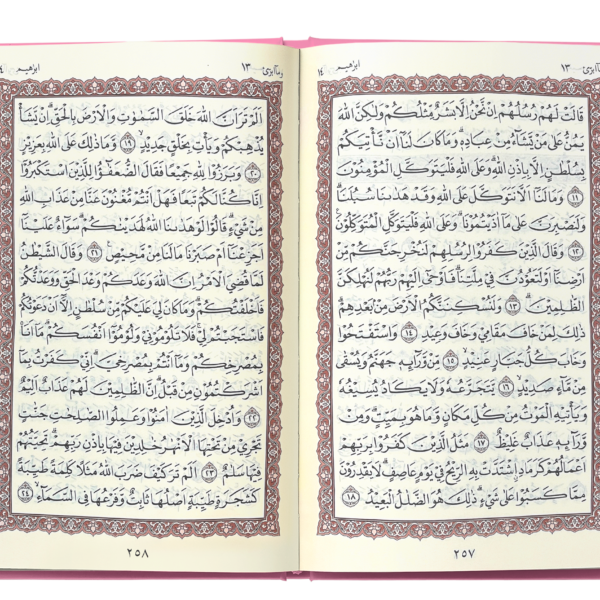 ابرٰهيم ١٤
وما ابرئ ١٣
قَالَتْ لَهُمْ رُسُلُهُمْ اِنْ نَحْنُ اِلَّا بَشَرٌ مِثْلُكُمْ وَلٰكِنَّ اللّٰهَ
يَمُنُّ عَلٰى مَنْ يَشَآءُ مِنْ عِبَادِهِ وَمَا كَانَ لَنَآ اَنْ نَأْتِيَكُمْ
بِسُلْطٰنٍ اِلَّا بِاِذْنِ اللّٰهِ وَعَلَى اللّٰهِ فَلْيَتَوَكَّلِ الْمُؤْمِنُونَ
﴿١١﴾ وَمَا لَنَآ اَلَّا نَتَوَكَّلَ عَلَى اللّٰهِ وَقَدْ هَدٰىنَا سُبُلَنَا
وَلَنَصْبِرَنَّ عَلٰى مَآ اٰذَيْتُمُونَا وَعَلَى اللّٰهِ فَلْيَتَوَكَّلِ الْمُتَوَكِّلُونَ
﴿١٢﴾ وَقَالَ الَّذِينَ كَفَرُوا لِرُسُلِهِمْ لَنُخْرِجَنَّكُمْ مِنْ
اَرْضِنَآ اَوْ لَتَعُودُنَّ فِي مِلَّتِنَا فَاَوْحٰٓى اِلَيْهِمْ رَبُّهُمْ لَنُهْلِكَنَّ
الظّٰلِمِينَ ﴿١٣﴾ وَلَنُسْكِنَنَّكُمُ الْاَرْضَ مِنْ بَعْدِهِمْ
ذٰلِكَ لِمَنْ خَافَ مَقَامِي وَخَافَ وَعِيدِ ﴿١٤﴾ وَاسْتَفْتَحُوا
وَخَابَ كُلُّ جَبَّارٍ عَنِيدٍ ﴿١٥﴾ مِنْ وَرَآئِهِ جَهَنَّمُ وَيُسْقٰى
مِنْ مَآءٍ صَدِيدٍ ﴿١٦﴾ يَتَجَرَّعُهُ وَلَا يَكَادُ يُسِيغُهُ
وَيَأْتِيهِ الْمَوْتُ مِنْ كُلِّ مَكَانٍ وَمَا هُوَ بِمَيِّتٍ وَمِنْ
وَرَآئِهِ عَذَابٌ غَلِيظٌ ﴿١٧﴾ مَثَلُ الَّذِينَ كَفَرُوا بِرَبِّهِمْ
اَعْمَالُهُمْ كَرَمَادٍ اشْتَدَّتْ بِهِ الرِّيحُ فِي يَوْمٍ عَاصِفٍ لَا يَقْدِرُونَ
مِمَّا كَسَبُوا عَلٰى شَيْءٍ ذٰلِكَ هُوَ الضَّلٰلُ الْبَعِيدُ ﴿١٨﴾
٢٥٧
وما ابرئ ١٣
ابرٰهيم
اَلَمْ تَرَ اَنَّ اللّٰهَ خَلَقَ السَّمٰوٰتِ وَالْاَرْضَ بِالْحَقِّ اِنْ يَشَأْ
يُذْهِبْكُمْ وَيَأْتِ بِخَلْقٍ جَدِيدٍ ﴿١٩﴾ وَمَا ذٰلِكَ عَلَى اللّٰهِ بِعَزِيزٍ
﴿٢٠﴾ وَبَرَزُوا لِلّٰهِ جَمِيعًا فَقَالَ الضُّعَفٰٓؤُا لِلَّذِينَ اسْتَكْبَرُٓوا
اِنَّا كُنَّا لَكُمْ تَبَعًا فَهَلْ اَنْتُمْ مُغْنُونَ عَنَّا مِنْ عَذَابِ اللّٰهِ
مِنْ شَيْءٍ قَالُوا لَوْ هَدٰىنَا اللّٰهُ لَهَدَيْنٰكُمْ سَوَآءٌ عَلَيْنَآ
اَجَزِعْنَآ اَمْ صَبَرْنَا مَا لَنَا مِنْ مَحِيصٍ ﴿٢١﴾ وَقَالَ الشَّيْطٰنُ
لَمَّا قُضِيَ الْاَمْرُ اِنَّ اللّٰهَ وَعَدَكُمْ وَعْدَ الْحَقِّ وَوَعَدْتُكُمْ
فَاَخْلَفْتُكُمْ وَمَا كَانَ لِيَ عَلَيْكُمْ مِنْ سُلْطٰنٍ اِلَّآ اَنْ دَعَوْتُكُمْ
فَاسْتَجَبْتُمْ لِي فَلَا تَلُومُونِي وَلُومُٓوا اَنْفُسَكُمْ مَآ اَنَا
بِمُصْرِخِكُمْ وَمَآ اَنْتُمْ بِمُصْرِخِيَّ اِنِّي كَفَرْتُ بِمَآ
اَشْرَكْتُمُونِ مِنْ قَبْلُ اِنَّ الظّٰلِمِينَ لَهُمْ عَذَابٌ اَلِيمٌ
﴿٢٢﴾ وَاُدْخِلَ الَّذِينَ اٰمَنُوا وَعَمِلُوا الصّٰلِحٰتِ جَنّٰتٍ
تَجْرِي مِنْ تَحْتِهَا الْاَنْهٰرُ خٰلِدِينَ فِيهَا بِاِذْنِ رَبِّهِمْ تَحِيَّتُهُمْ
فِيهَا سَلٰمٌ ﴿٢٣﴾ اَلَمْ تَرَ كَيْفَ ضَرَبَ اللّٰهُ مَثَلًا كَلِمَةً طَيِّبَةً
كَشَجَرَةٍ طَيِّبَةٍ اَصْلُهَا ثَابِتٌ وَفَرْعُهَا فِي السَّمَآءِ ﴿٢٤﴾
٢٥٨